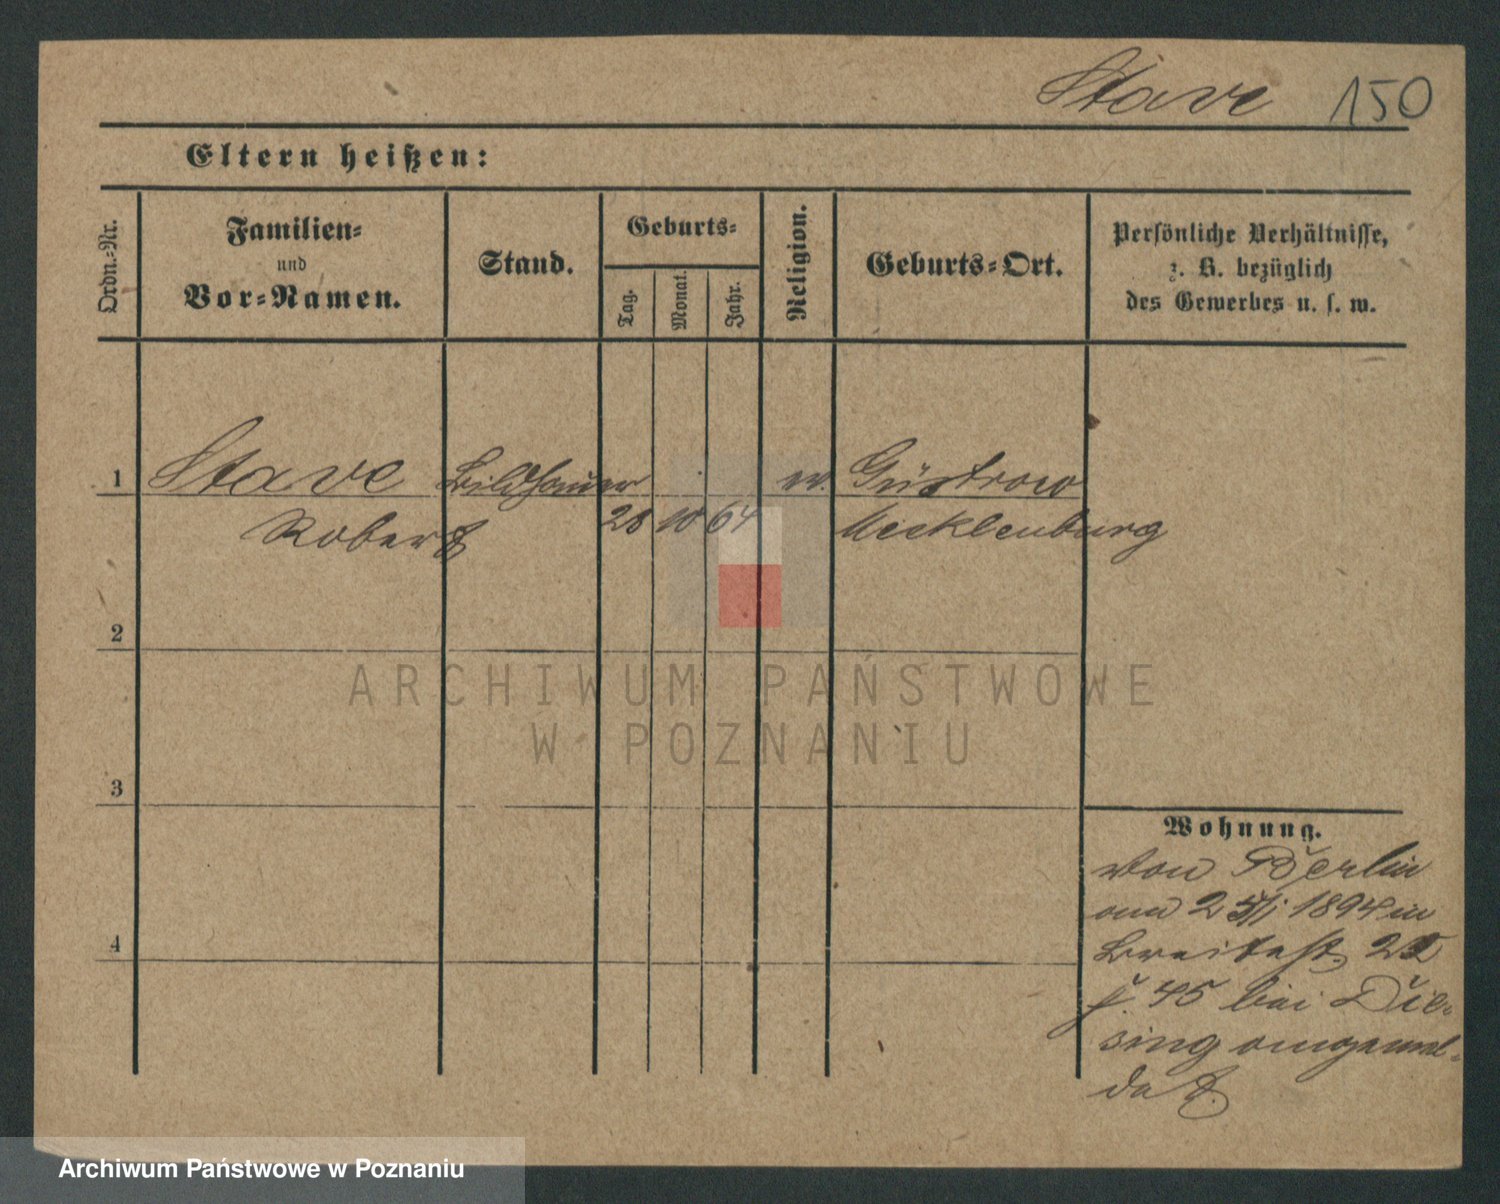 Stave 150
Eltern heißen:
Ordn.-Nr. Familien- und Vor-Namen. Stand. Geburts- Tag. Monat. Jahr. Religion. Geburts-Ort. Persönliche Verhältnisse, z. B. bezüglich des Gewerbes u. s. w.
1 Stave Bildhauer ev. Güstrow
Robert 28 10 64 Mecklenburg
2
ARCHIWUM PAŃSTWOWE
W POZNANIU
3
4
Wohnung.
von Berlin
am 1894 in
Breitestr.
45 bei Die-
sing angemel-
det.
Archiwum Państwowe w Poznaniu